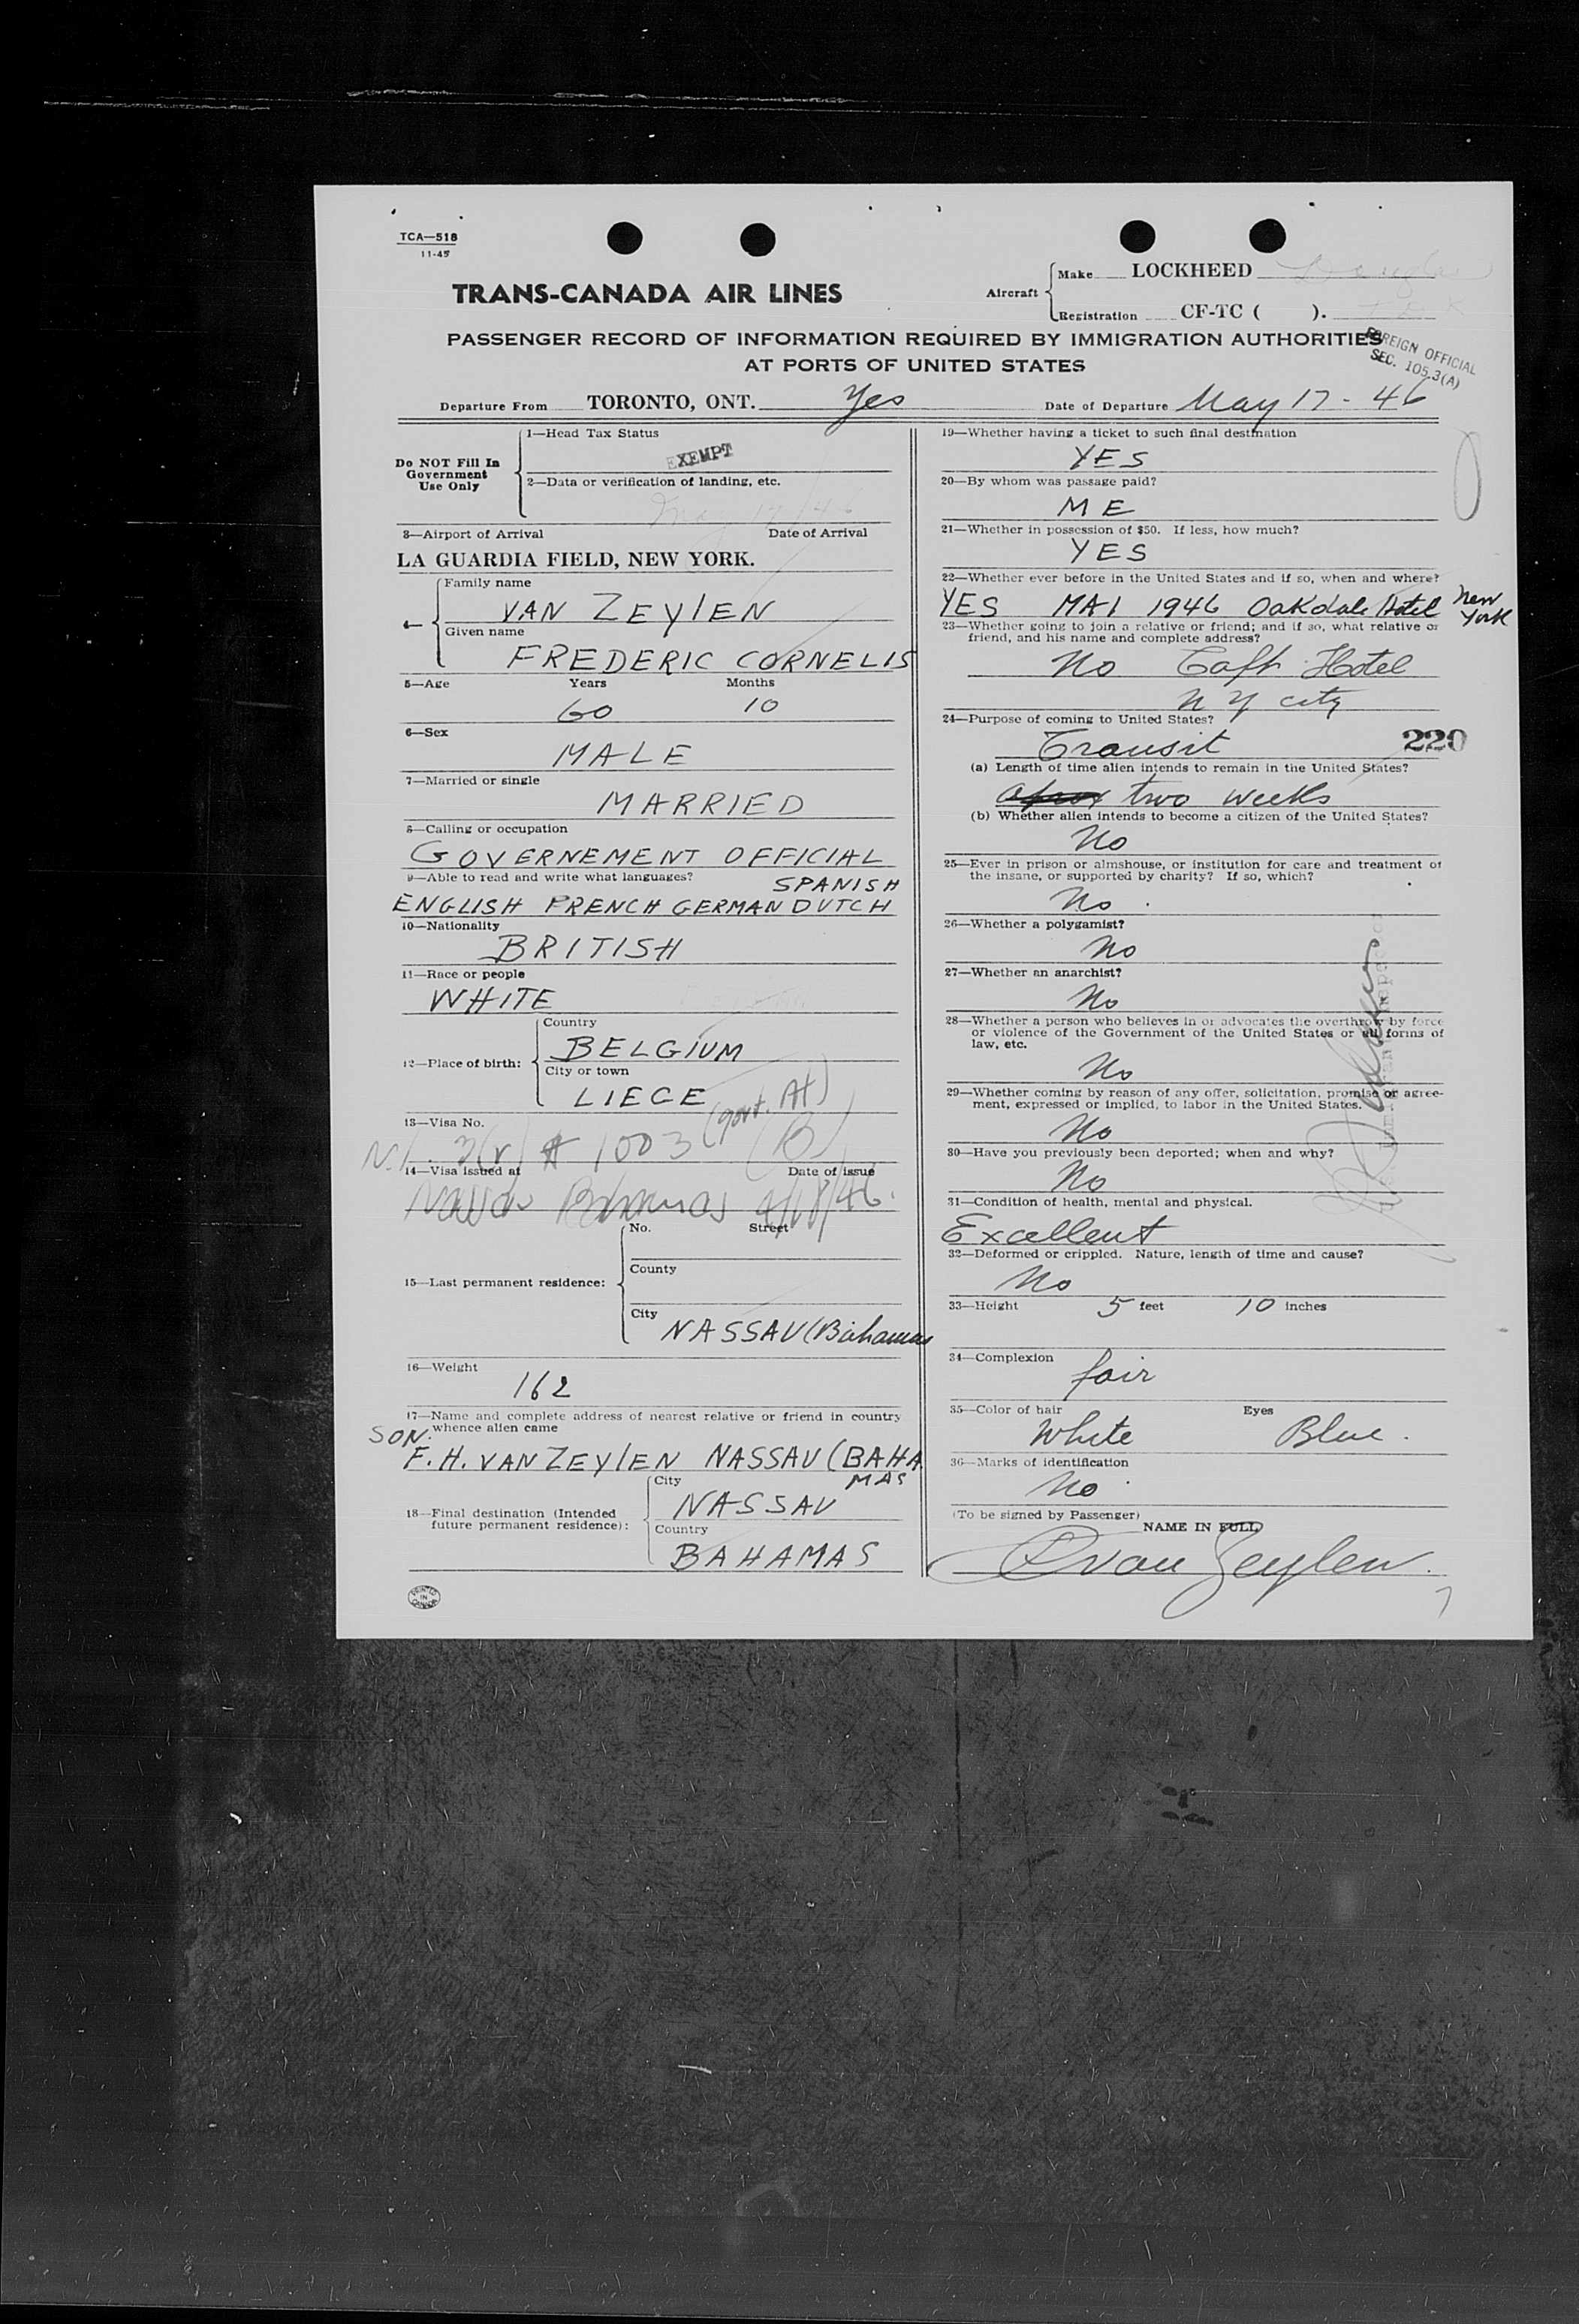 TCA—518
11-45
TRANS-CANADA AIR LINES
Aircraft
Make LOCKHEED
Registration CF-TC ( ).
PASSENGER RECORD OF INFORMATION REQUIRED BY IMMIGRATION AUTHORITIES
AT PORTS OF UNITED STATES
FOREIGN OFFICIAL
SEC. 105.3(A)
Departure From TORONTO, ONT. Yes Date of Departure May 17 - 46
Do NOT Fill In
Government
Use Only
1—Head Tax Status
EXEMPT
2—Data or verification of landing, etc.
3—Airport of Arrival Date of Arrival
LA GUARDIA FIELD, NEW YORK.
4—
Family name
VAN ZEYLEN
Given name
FREDERIC CORNELIS
5—Age Years Months
60 10
6—Sex
MALE
7—Married or single
MARRIED
8—Calling or occupation
GOVERNEMENT OFFICIAL
9—Able to read and write what languages?
SPANISH
ENGLISH FRENCH GERMAN DUTCH
10—Nationality
BRITISH
11—Race or people
WHITE
12—Place of birth:
Country
BELGIUM
City or town
LIEGE
13—Visa No.
3(r) # 1003 (govt. At)
(B)
14—Visa issued at Date of issue
Nassau Bahamas 4/18/46.
15—Last permanent residence:
No. Street
County
City
NASSAU (Bahamas
16—Weight
162
17—Name and complete address of nearest relative or friend in country
whence alien came
SON.
F. H. VAN ZEYLEN NASSAU (BAHA
MAS
18—Final destination (Intended
future permanent residence):
City
NASSAU
Country
BAHAMAS
PRINTED
IN
CANADA
19—Whether having a ticket to such final destination
YES
20—By whom was passage paid?
ME
21—Whether in possession of $50. If less, how much?
YES
22—Whether ever before in the United States and if so, when and where?
YES MAI 1946 Oakdale Hotel New
York
23—Whether going to join a relative or friend; and if so, what relative or
friend, and his name and complete address?
No Taft Hotel
N Y city
24—Purpose of coming to United States?
Transit
220
(a) Length of time alien intends to remain in the United States?
aprox two weeks
(b) Whether alien intends to become a citizen of the United States?
No
25—Ever in prison or almshouse, or institution for care and treatment of
the insane, or supported by charity? If so, which?
No.
26—Whether a polygamist?
No
27—Whether an anarchist?
No
28—Whether a person who believes in or advocates the overthrow by force
or violence of the Government of the United States or all forms of
law, etc.
No
29—Whether coming by reason of any offer, solicitation, promise or agree-
ment, expressed or implied, to labor in the United States.
No
30—Have you previously been deported; when and why?
No
31—Condition of health, mental and physical.
Excellent
32—Deformed or crippled. Nature, length of time and cause?
No
33—Height 5 feet 10 inches
34—Complexion
fair
35—Color of hair Eyes
White Blue.
36—Marks of identification
No
(To be signed by Passenger)
NAME IN FULL
van Zeylen